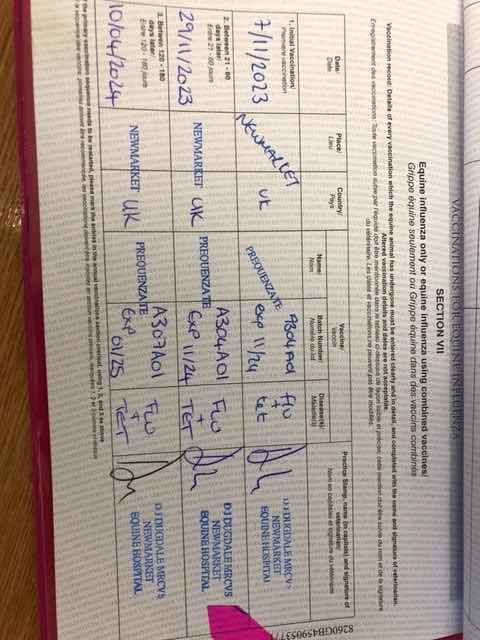 VACCINATIONS FOR EQUINE INFLUENZA
SECTION VII
Equine influenza only or equine influenza using combined vaccines/
Grippe équine seulement ou Grippe équine dans des vaccins combinés
Vaccination record: Details of every vaccination which the equine animal has undergone must be entered clearly and in detail, and completed with the name and signature of veterinarian.
Altered vaccination details and dates are not acceptable.
Enregistrement des vaccinations: Toute vaccination subie par l'équidé doit être mentionnée dans le tableau ci-dessous de façon lisible et précise, cette mention doit être suivie du nom et de la signature
du vétérinaire. Les dates et vaccinations ne peuvent pas être modifiés.
Date/
Date
Place/
Lieu
Country/
Pays
Vaccine/
Vaccin
Name/
Nom
Batch Number/
Numéro du lot
Disease(s)/
Maladie(s)
Practice Stamp, name (in capitals) and signature of
veterinarian/
Nom en capitales et signature du vétérinaire
1. Initial Vaccination/
Première vaccination
7/11/2023
NEWMARKET
UK
PREQUENZATE
A304A01
exp 11/24
flu
+
tet
D J DUGDALE MRCVS
NEWMARKET
EQUINE HOSPITAL
2. Between 21 - 60
days later/
Entre 21 - 60 jours
29/11/2023
NEWMARKET
UK
PREQUENZATE
A304A01
Exp 11/24
FLU
+
TET
D J DUGDALE MRCVS
NEWMARKET
EQUINE HOSPITAL
3. Between 120 - 180
days later/
Entre 120 - 180 jours
10/04/2024
NEWMARKET
UK
PREQUENZATE
A307A01
Exp 01/25
FLU
+
TET
D J DUGDALE MRCVS
NEWMARKET
EQUINE HOSPITAL